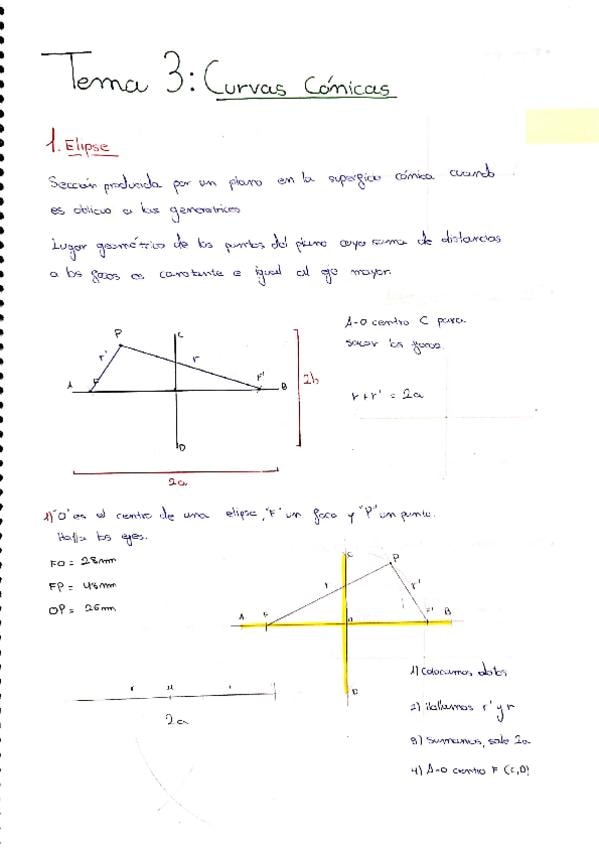 Tema 3: Curvas Cónicas
1. Elipse
Sección producida por un plano en la superficie cónica cuando
es oblicuo a las generatrices
Lugar geométrico de los puntos del plano cuya suma de distancias
a los focos es constante e igual al eje mayor.
A-O centro C para
sacar los focos.
P
C
r'
r
A
F
F'
B
2b
r + r' = 2a
D
2a
1) "O" es el centro de una elipse, "F" un foco y "P" un punto.
Halla los ejes.
FO = 28mm
FP = 48mm
OP = 26mm
C
P
r
r'
A
F
F'
B
2a
1) Colocamos datos
2) Hallamos r' y r
3) Sumamos, sale 2a
4) A-O centro F (C,D)